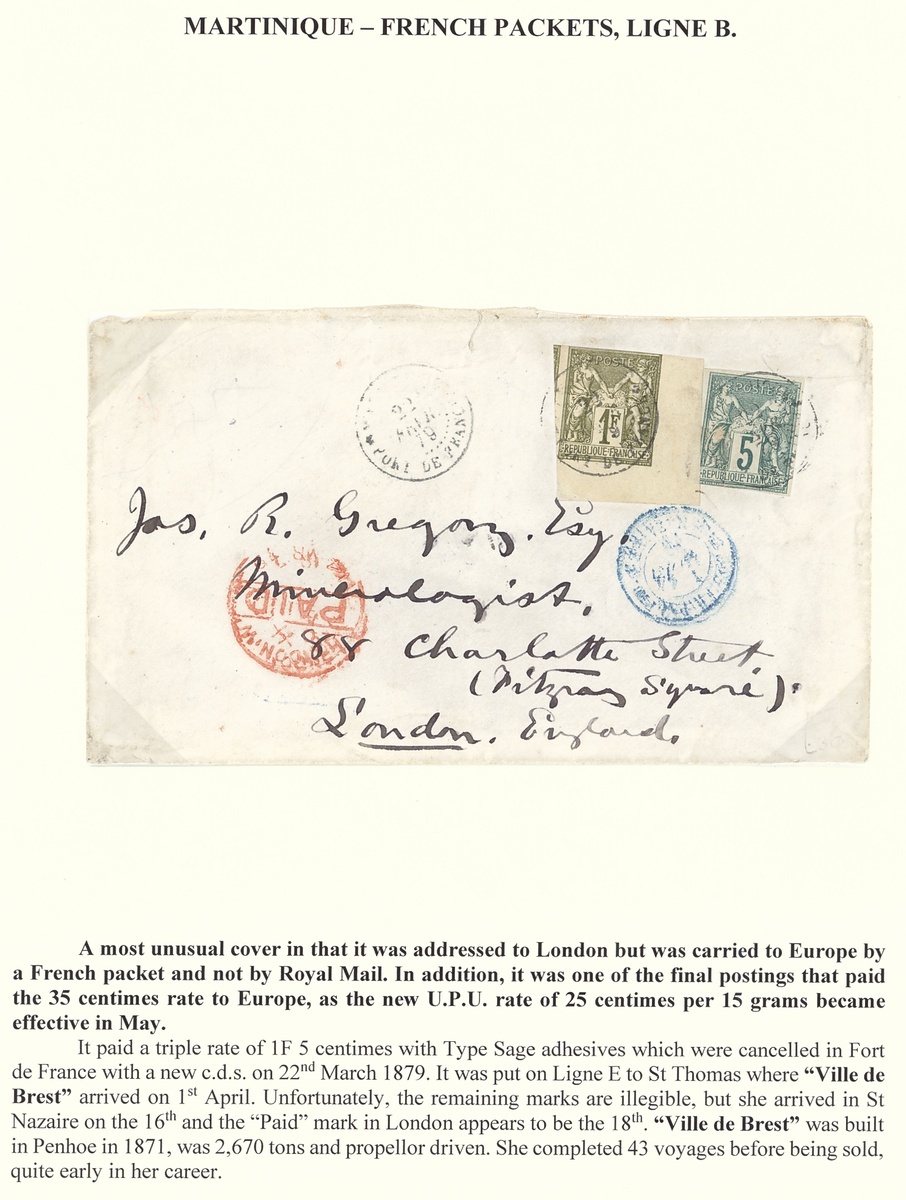 MARTINIQUE – FRENCH PACKETS, LIGNE B.
22
79
FORT DE FRANCE
POSTE
1F
REPUBLIQUE FRANCAISE
POSTE
5
REPUBLIQUE FRANCAISE
Jas. R. Gregory. Esq.
Minerologist.
PAID
LONDON.N.W
88 Charlotte Street
(Fitzroy Square).
London. England.
A most unusual cover in that it was addressed to London but was carried to Europe by
a French packet and not by Royal Mail. In addition, it was one of the final postings that paid
the 35 centimes rate to Europe, as the new U.P.U. rate of 25 centimes per 15 grams became
effective in May.
It paid a triple rate of 1F 5 centimes with Type Sage adhesives which were cancelled in Fort
de France with a new c.d.s. on 22nd March 1879. It was put on Ligne E to St Thomas where “Ville de
Brest” arrived on 1st April. Unfortunately, the remaining marks are illegible, but she arrived in St
Nazaire on the 16th and the “Paid” mark in London appears to be the 18th. “Ville de Brest” was built
in Penhoe in 1871, was 2,670 tons and propellor driven. She completed 43 voyages before being sold,
quite early in her career.